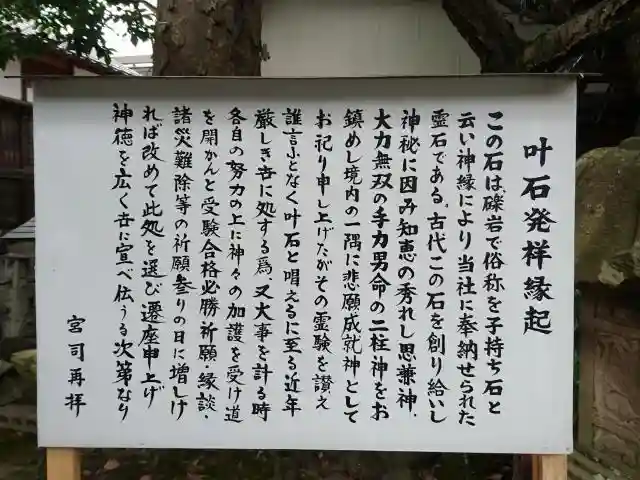 叶石発祥縁起
この石は、礫岩で俗称を子持ち石と
云い神縁により当社に奉納せられた
霊石である。古代この石を創り給いし
神秘に因み知恵の秀れし思兼神、
大力無双の手力男命の二柱神をお
鎮めし境内の一隅に悲願成就神として
お祀り申し上げたがその霊験を讃え
誰言ふとなく叶石と唱えるに至る近年
厳しき世に処する為、又大事を計る時
各自の努力の上に神々の加護を受け道
を開かんと受験合格必勝祈願・縁談・
諸災難除等の祈願参りの日に増しけ
れば改めて此処を選び遷座申上げ
神徳を広く世に宣べ伝うる次第なり
宮司再拝